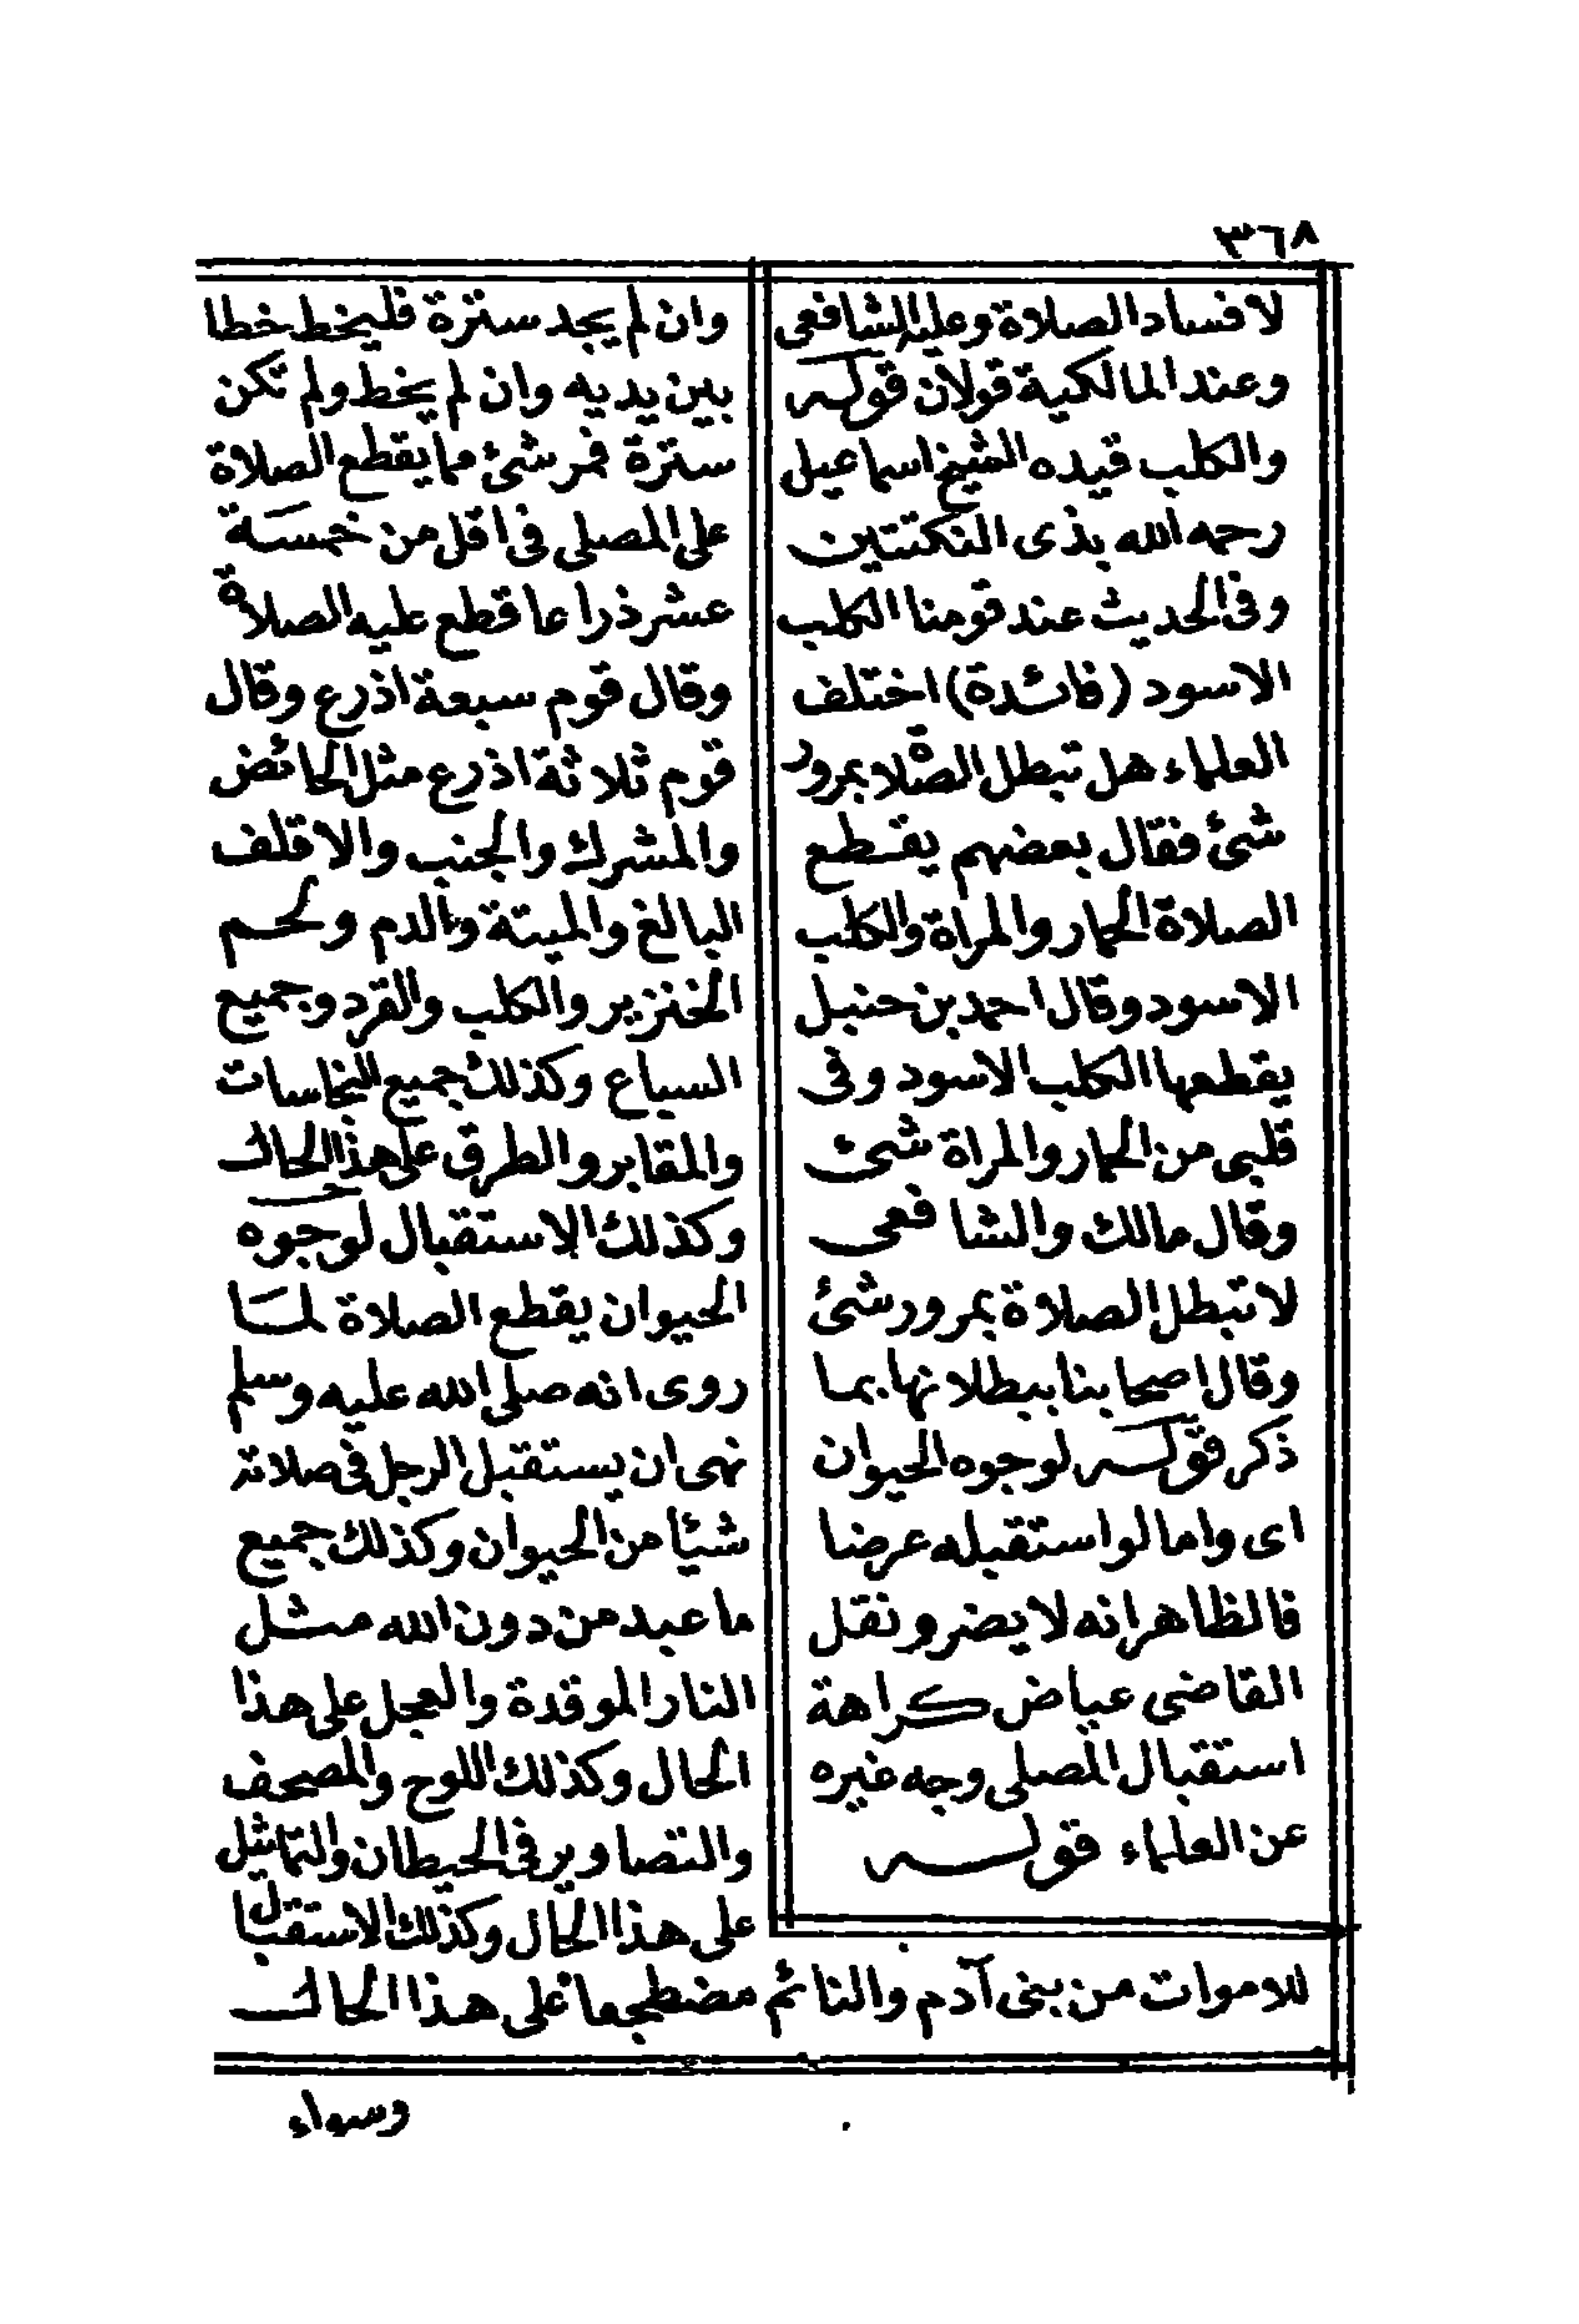 ٣٦٨
لا فساد الصلاة وعليه الشافعى
وعند المالكية قولان قوله
والكلب قيده الشيخ اسماعيل
رحمه الله بذى النكتتين
وفى الحديث عند قومنا الكلب
الاسود (فائدة) اختلف
العلماء هل تبطل الصلاة بمرور
شئ فقال بعضهم يقطع
الصلاة الحمار والمراة والكلب
الاسود وقال احمد بن حنبل
يقطعها الكلب الاسود وفى
قلبى من الحمار والمراة شئ
وقال مالك والشافعى
لا تبطل الصلاة بمرور شئ
وقال اصحابنا ببطلانها بما
ذكر قوله لوجوه الحيوان
اى واما لو استقبله عرضا
فالظاهر انه لا يضر ونقل
القاضى عياض كراهة
استقبال المصلى وجه غيره
عن العلماء قوله
وان لم يجد سترة فليخط خطا
بين يديه وان لم يخط ولم تكن
سترة فمر شئ مما يقطع الصلاة
على المصلى فى اقل من خمسة
عشر ذراعا قطع عليه الصلاة
وقال قوم سبعة اذرع وقال
قوم ثلاثة اذرع مثل الحائض
والمشرك والجنب والاقلف
البالغ والميتة والدم ولحم
الخنزير والكلب والقرد وجميع
السباع وكذلك جميع النجاسات
والمقابر والطرق على هذا الحال
وكذلك الاستقبال لوجوه
الحيوان يقطع الصلاة لما
روى انه صلى الله عليه وسلم
نهى ان يستقبل الرجل فى صلاته
شيئا من الحيوان وكذلك جميع
ما عبد من دون الله مثل
النار الموقدة والعجل على هذا
الحال وكذلك اللوح والمصحف
والتصاوير فى الحيطان والتماثيل
على هذا الحال وكذلك الاستقبال
للاموات من بنى آدم والنائم مضطجعا على هذا الحال
وسواء